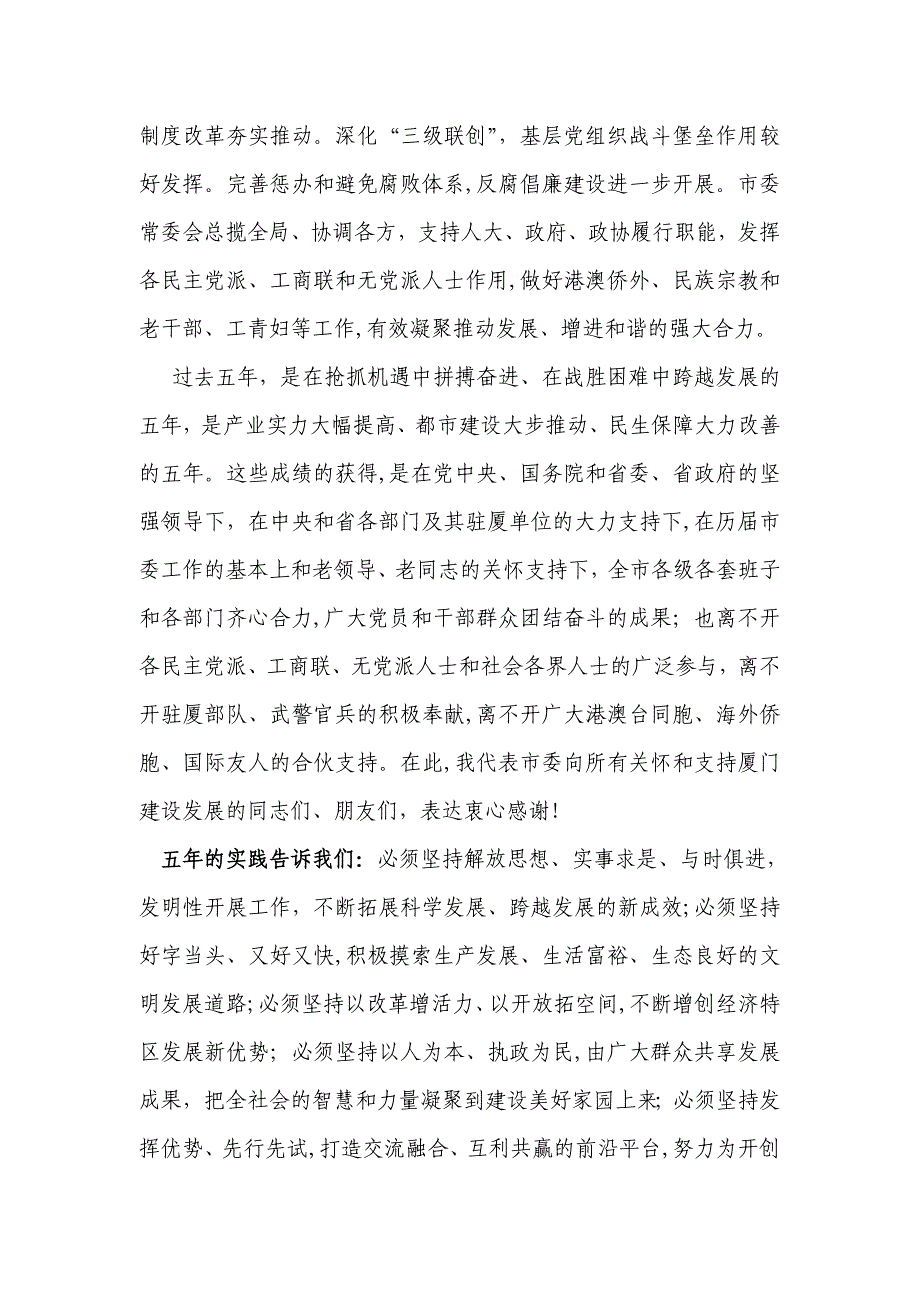 制度改革夯实推动。深化“三级联创”，基层党组织战斗堡垒作用较
好发挥。完善惩办和避免腐败体系,反腐倡廉建设进一步开展。市委
常委会总揽全局、协调各方，支持人大、政府、政协履行职能，发挥
各民主党派、工商联和无党派人士作用,做好港澳侨外、民族宗教和
老干部、工青妇等工作,有效凝聚推动发展、增进和谐的强大合力。
过去五年，是在抢抓机遇中拼搏奋进、在战胜困难中跨越发展的
五年，是产业实力大幅提高、都市建设大步推动、民生保障大力改善
的五年。这些成绩的获得,是在党中央、国务院和省委、省政府的坚
强领导下，在中央和省各部门及其驻厦单位的大力支持下,在历届市
委工作的基本上和老领导、老同志的关怀支持下，全市各级各套班子
和各部门齐心合力,广大党员和干部群众团结奋斗的成果；也离不开
各民主党派、工商联、无党派人士和社会各界人士的广泛参与，离不
开驻厦部队、武警官兵的积极奉献,离不开广大港澳台同胞、海外侨
胞、国际友人的合伙支持。在此,我代表市委向所有关怀和支持厦门
建设发展的同志们、朋友们，表达衷心感谢！
五年的实践告诉我们：必须坚持解放思想、实事求是、与时俱进，
发明性开展工作，不断拓展科学发展、跨越发展的新成效;必须坚持
好字当头、又好又快,积极摸索生产发展、生活富裕、生态良好的文
明发展道路;必须坚持以改革增活力、以开放拓空间,不断增创经济特
区发展新优势；必须坚持以人为本、执政为民,由广大群众共享发展
成果，把全社会的智慧和力量凝聚到建设美好家园上来；必须坚持发
挥优势、先行先试,打造交流融合、互利共赢的前沿平台,努力为开创